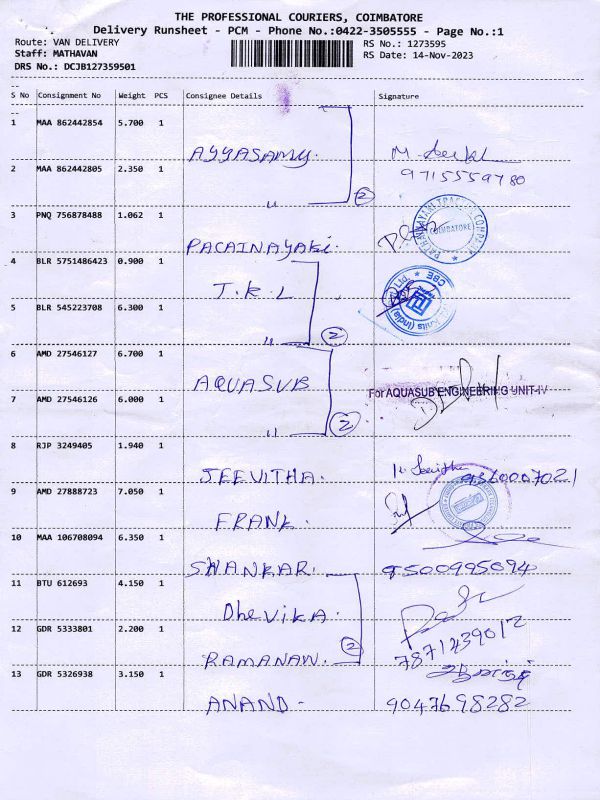 THE PROFESSIONAL COURIERS, COIMBATORE
Delivery Runsheet - PCM - Phone No.:0422-3505555 - Page No.:1
Route: VAN DELIVERY RS No.: 1273595
Staff: MATHAVAN RS Date: 14-Nov-2023
DRS No.: DCJB127359501
S No Consignment No Weight PCS Consignee Details Signature
1 MAA 862442854 5.700 1 AYYASAMY.
2 MAA 862442805 2.350 1 " 2 9715559780
3 PNQ 756878488 1.062 1 PACAINAYAKI. COIMBATORE
4 BLR 5751486423 0.900 1 J.K.L
5 BLR 545223708 6.300 1 " 2
6 AMD 27546127 6.700 1 AQUASUB For AQUASUB ENGINEERING UNIT-IV
7 AMD 27546126 6.000 1 " 2
8 RJP 3249405 1.940 1 JEEVITHA. 9360007021
9 AMD 27888723 7.050 1 FRANK.
10 MAA 106708094 6.350 1 SHANKAR. 9500995094
11 BTU 612693 4.150 1 Dhevika.
12 GDR 5333801 2.200 1 RAMANAN. 2 7871239012
13 GDR 5326938 3.150 1 ANAND- 9047698282